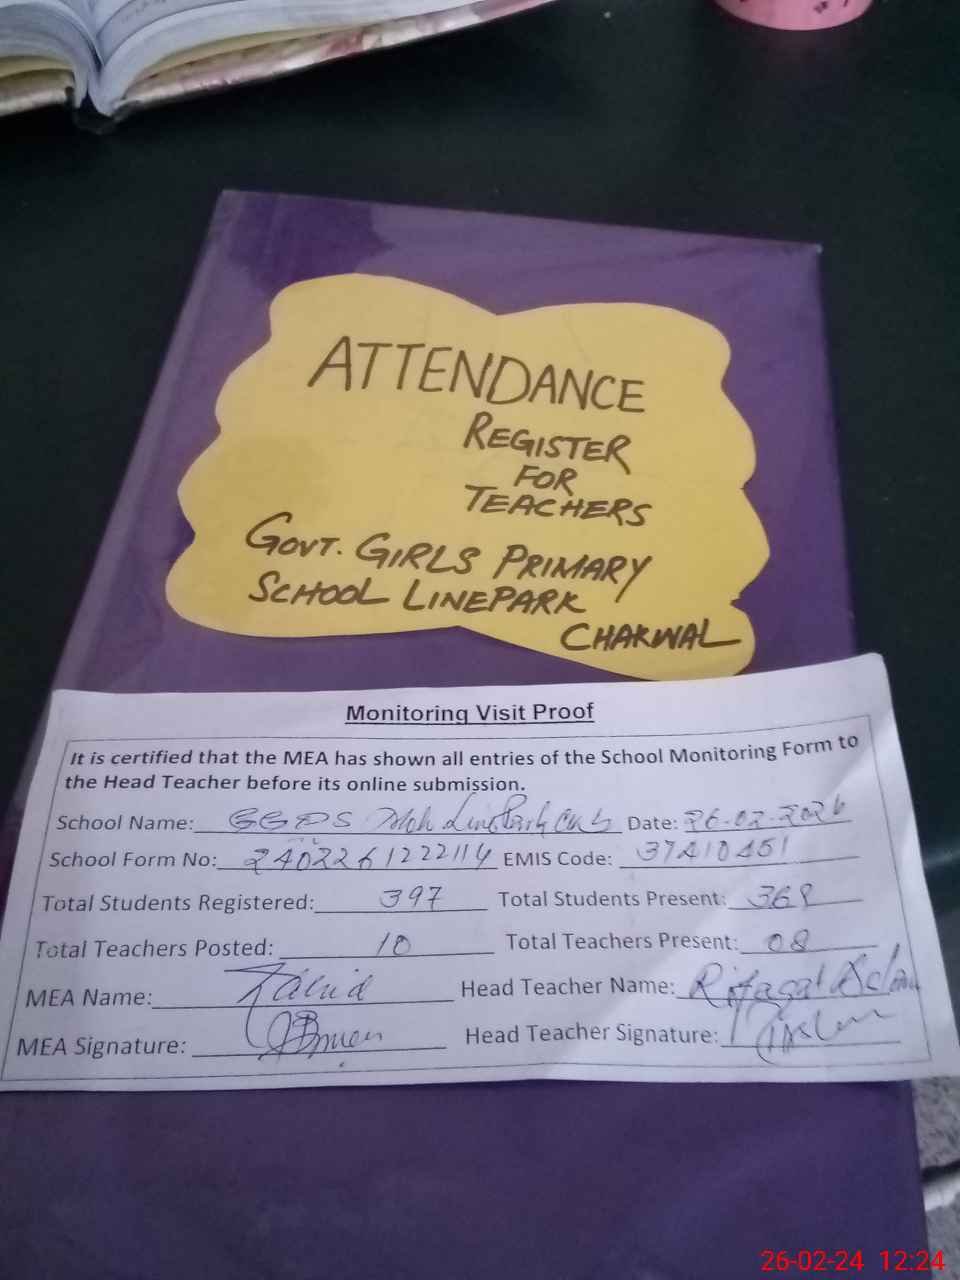 ATTENDANCE
REGISTER
FOR
TEACHERS
GOVT. GIRLS PRIMARY
SCHOOL LINEPARK
CHAKWAL
Monitoring Visit Proof
It is certified that the MEA has shown all entries of the School Monitoring Form to
the Head Teacher before its online submission.
School Name: GGPS Moh Line Park Date: 26-02-2026
School Form No: 2402261222114 EMIS Code: 37410451
Total Students Registered: 397 Total Students Present: 368
Total Teachers Posted: 10 Total Teachers Present: 08
MEA Name: Zahid Head Teacher Name: Rifaqat
MEA Signature: Head Teacher Signature:
26-02-24 12:24